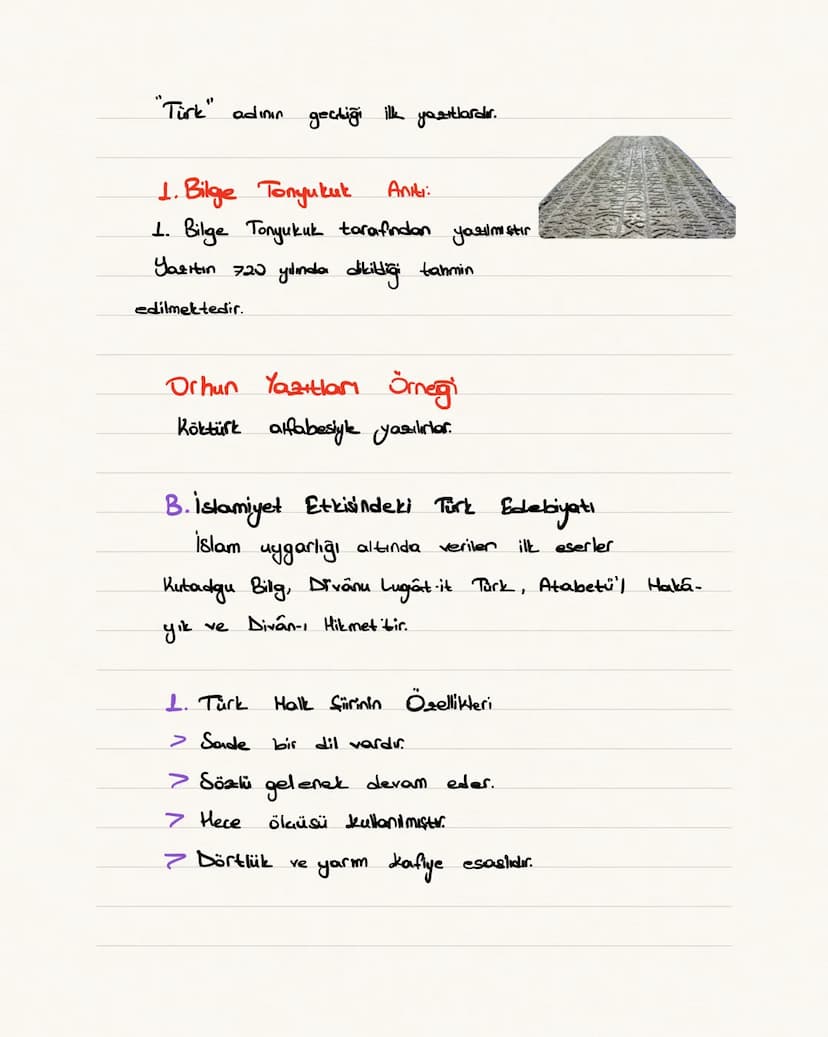 "Türk" adının geçtiği ilk yazıtlardır.
1. Bilge Tonyukuk Anıtı:
1. Bilge Tonyukuk tarafından yazılmıştır
Yazıtın 720 yılında dikildiği tahmin
edilmektedir.
Orhun Yazıtları Örneği
Köktürk alfabesiyle yazılırlar.
B. İslamiyet Etkisindeki Türk Edebiyatı
İslam uygarlığı altında verilen ilk eserler
Kutadgu Bilg, Dîvânu Lugât-it Türk, Atabetü'l Hakâ-
yık ve Divân-ı Hikmet'tir.
1. Türk Halk Şiirinin Özellikleri
> Sade bir dil vardır.
> Sözlü gelenek devam eder.
> Hece ölçüsü kullanılmıştır.
> Dörtlük ve yarım kafiye esaslıdır.